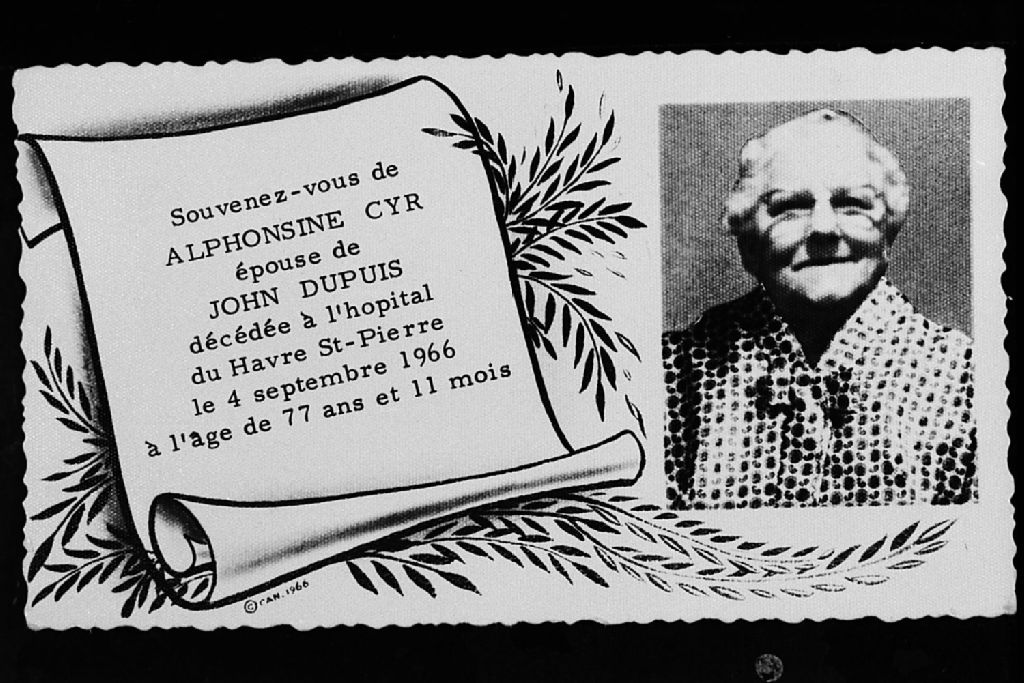 Souvenez-vous de
ALPHONSINE CYR
épouse de
JOHN DUPUIS
décédée à l'hopital
du Havre St-Pierre
le 4 septembre 1966
à l'âge de 77 ans et 11 mois
© CAN. 1966